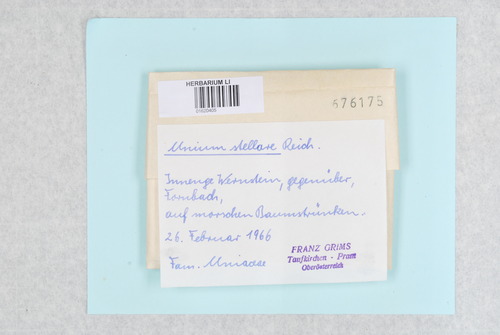 HERBARIUM LI
576175
Mnium stellare Reich.
Innenge Wernstein, gegenüber,
Fornbach,
auf morschen Baumstrünken.
26. Februar 1966
Fam. Mniacae
FRANZ GRIMS
Taufkirchen - Pram
Oberösterreich